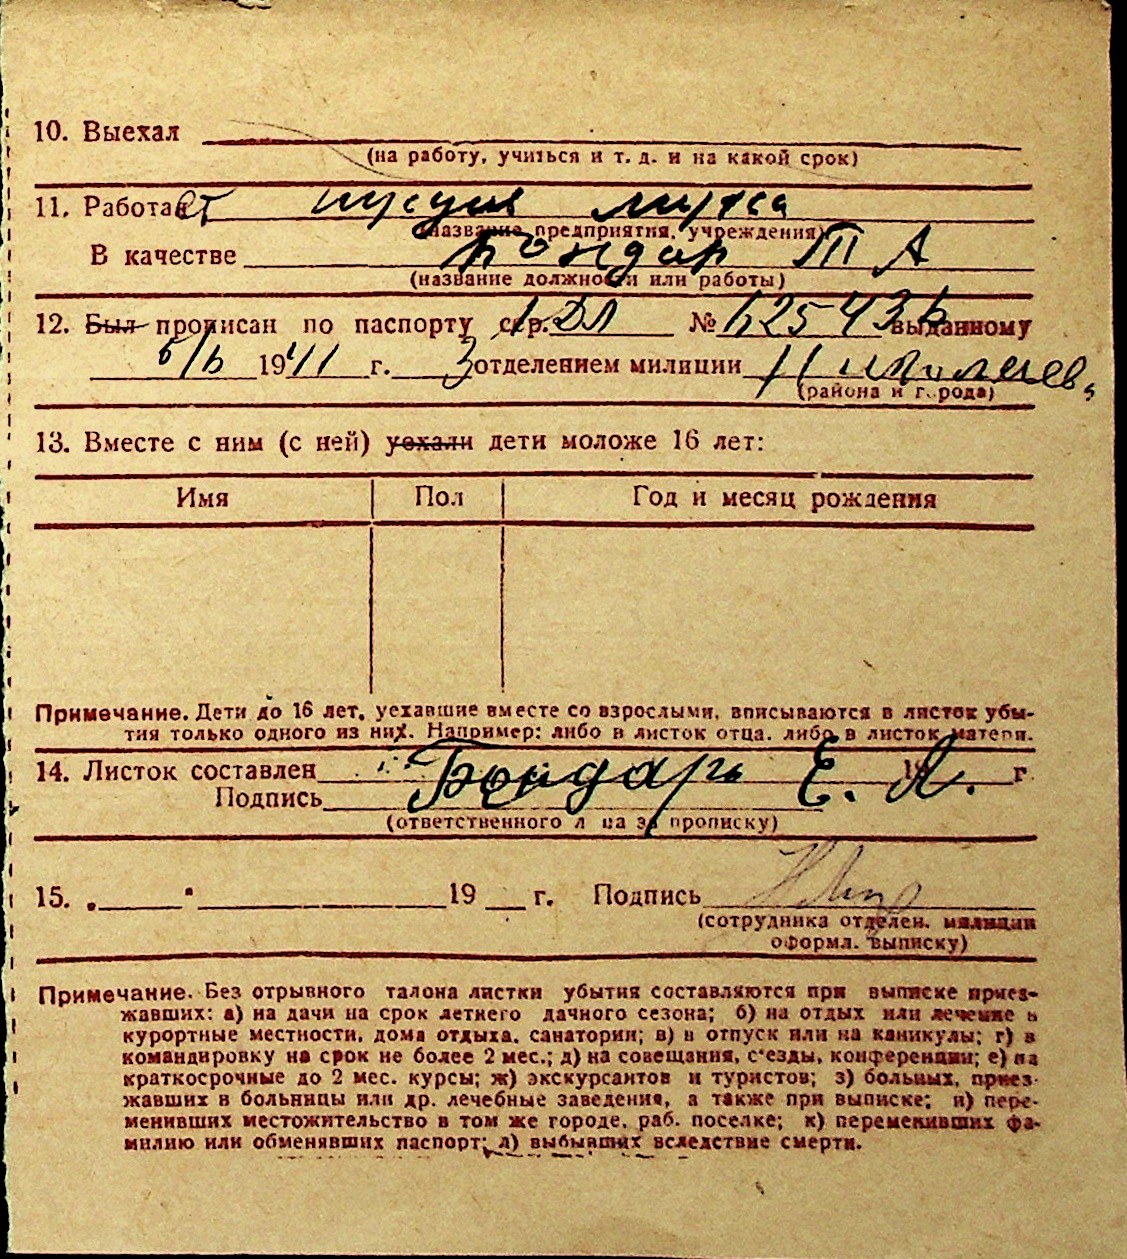 10. Выехал
(на работу, учиться и т. д. и на какой срок)
11. Работает
(название предприятия, учреждения)
В качестве Бондар Т А
(название должности или работы)
12. Был прописан по паспорту сер. ДЛ № выданному
6/6 1941 г. 3 отделением милиции Николаев,
(района и города)
13. Вместе с ним (с ней) уехали дети моложе 16 лет:
Имя Пол Год и месяц рождения
Примечание. Дети до 16 лет, уехавшие вместе со взрослыми, вписываются в листок убы-
тия только одного из них. Например: либо в листок отца, либо в листок матери.
14. Листок составлен 19 г
Подпись Бондарь Е. Я.
(ответственного лица за прописку)
15. „ " 19 г. Подпись
(сотрудника отделен. милиции
оформл. выписку)
Примечание. Без отрывного талона листки убытия составляются при выписке приез-
жавших: а) на дачи на срок летнего дачного сезона; б) на отдых или лечение в
курортные местности, дома отдыха, санатории; в) в отпуск или на каникулы; г) в
командировку на срок не более 2 мес.; д) на совещания, с'езды, конференции; е) на
краткосрочные до 2 мес. курсы; ж) экскурсантов и туристов; з) больных, приез-
жавших в больницы или др. лечебные заведения, а также при выписке; и) пере-
менивших местожительство в том же городе, раб. поселке; к) переменивших фа-
милию или обменявших паспорт; л) выбывших вследствие смерти.